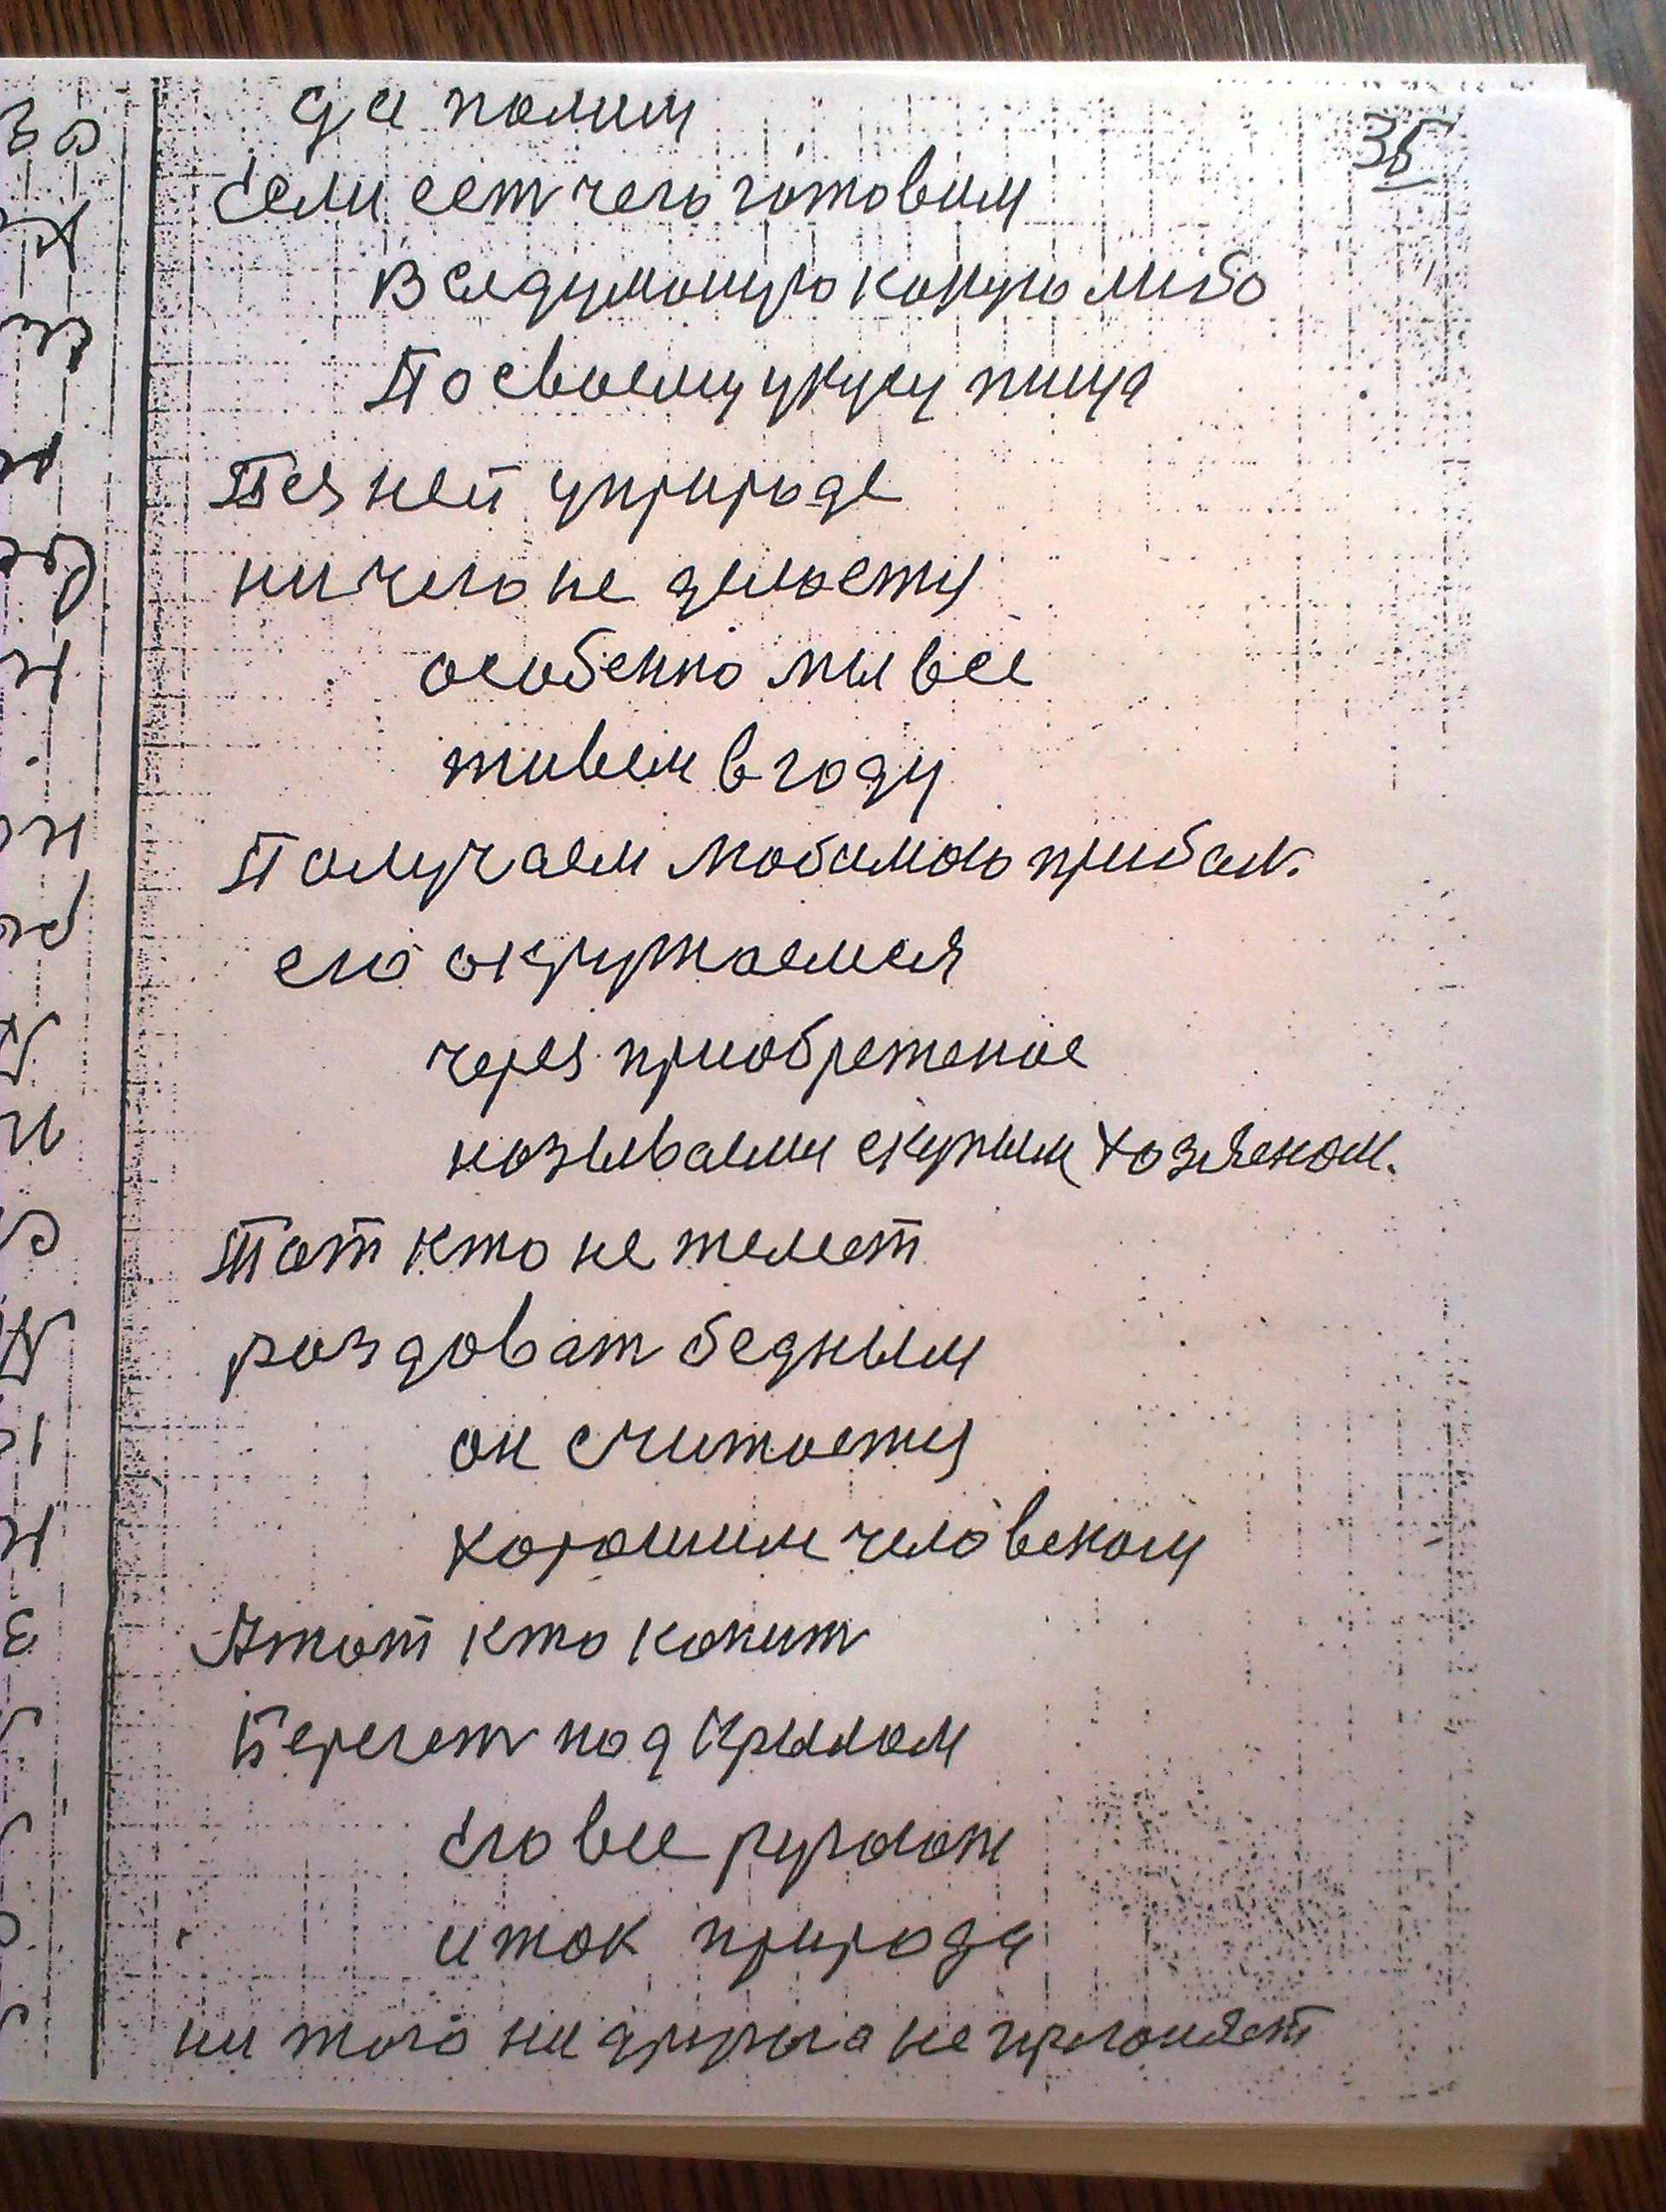 35
да полим
Если ест чего готовим
Вседумоную какую либо
По своему укусу пища
Без ней у природе
ничего не делается
особенно мы все
живем в году
Получаем любимаю прибыл.
его окружаемся
через приобретение
называеми скупым хозяеном.
Тот кто не желает
роздоват бедным
он считается
хорошим человеком
А тот кто копит
Бережет под крылом
Его все ругают
и так природа
ни того ни другога не прогоняет